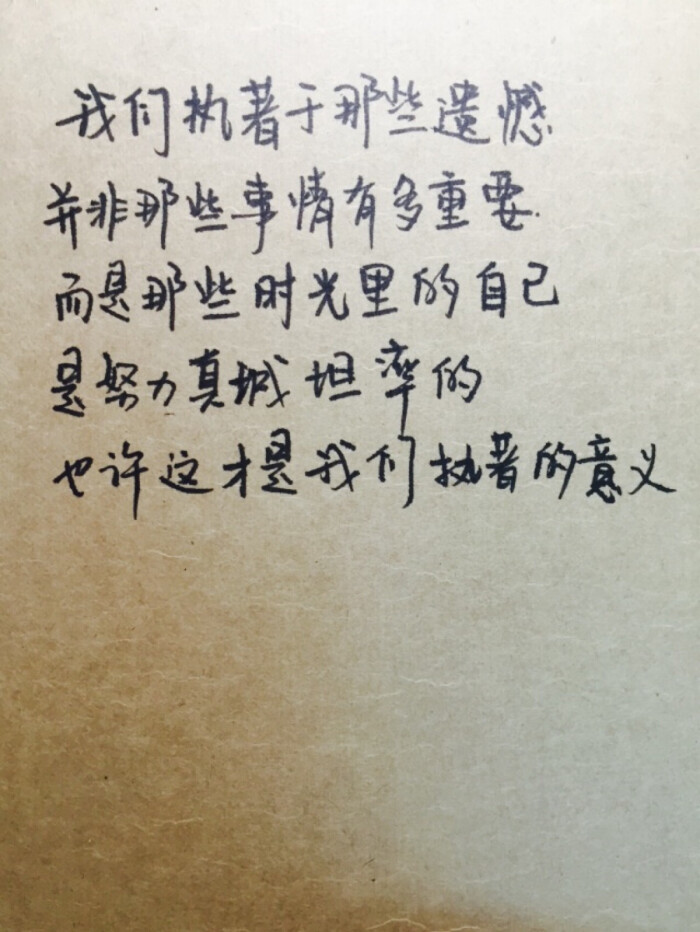 我们执着于那些遗憾
并非那些事情有多重要.
而是那些时光里的自己
是努力真诚坦率的
也许这才是我们执着的意义